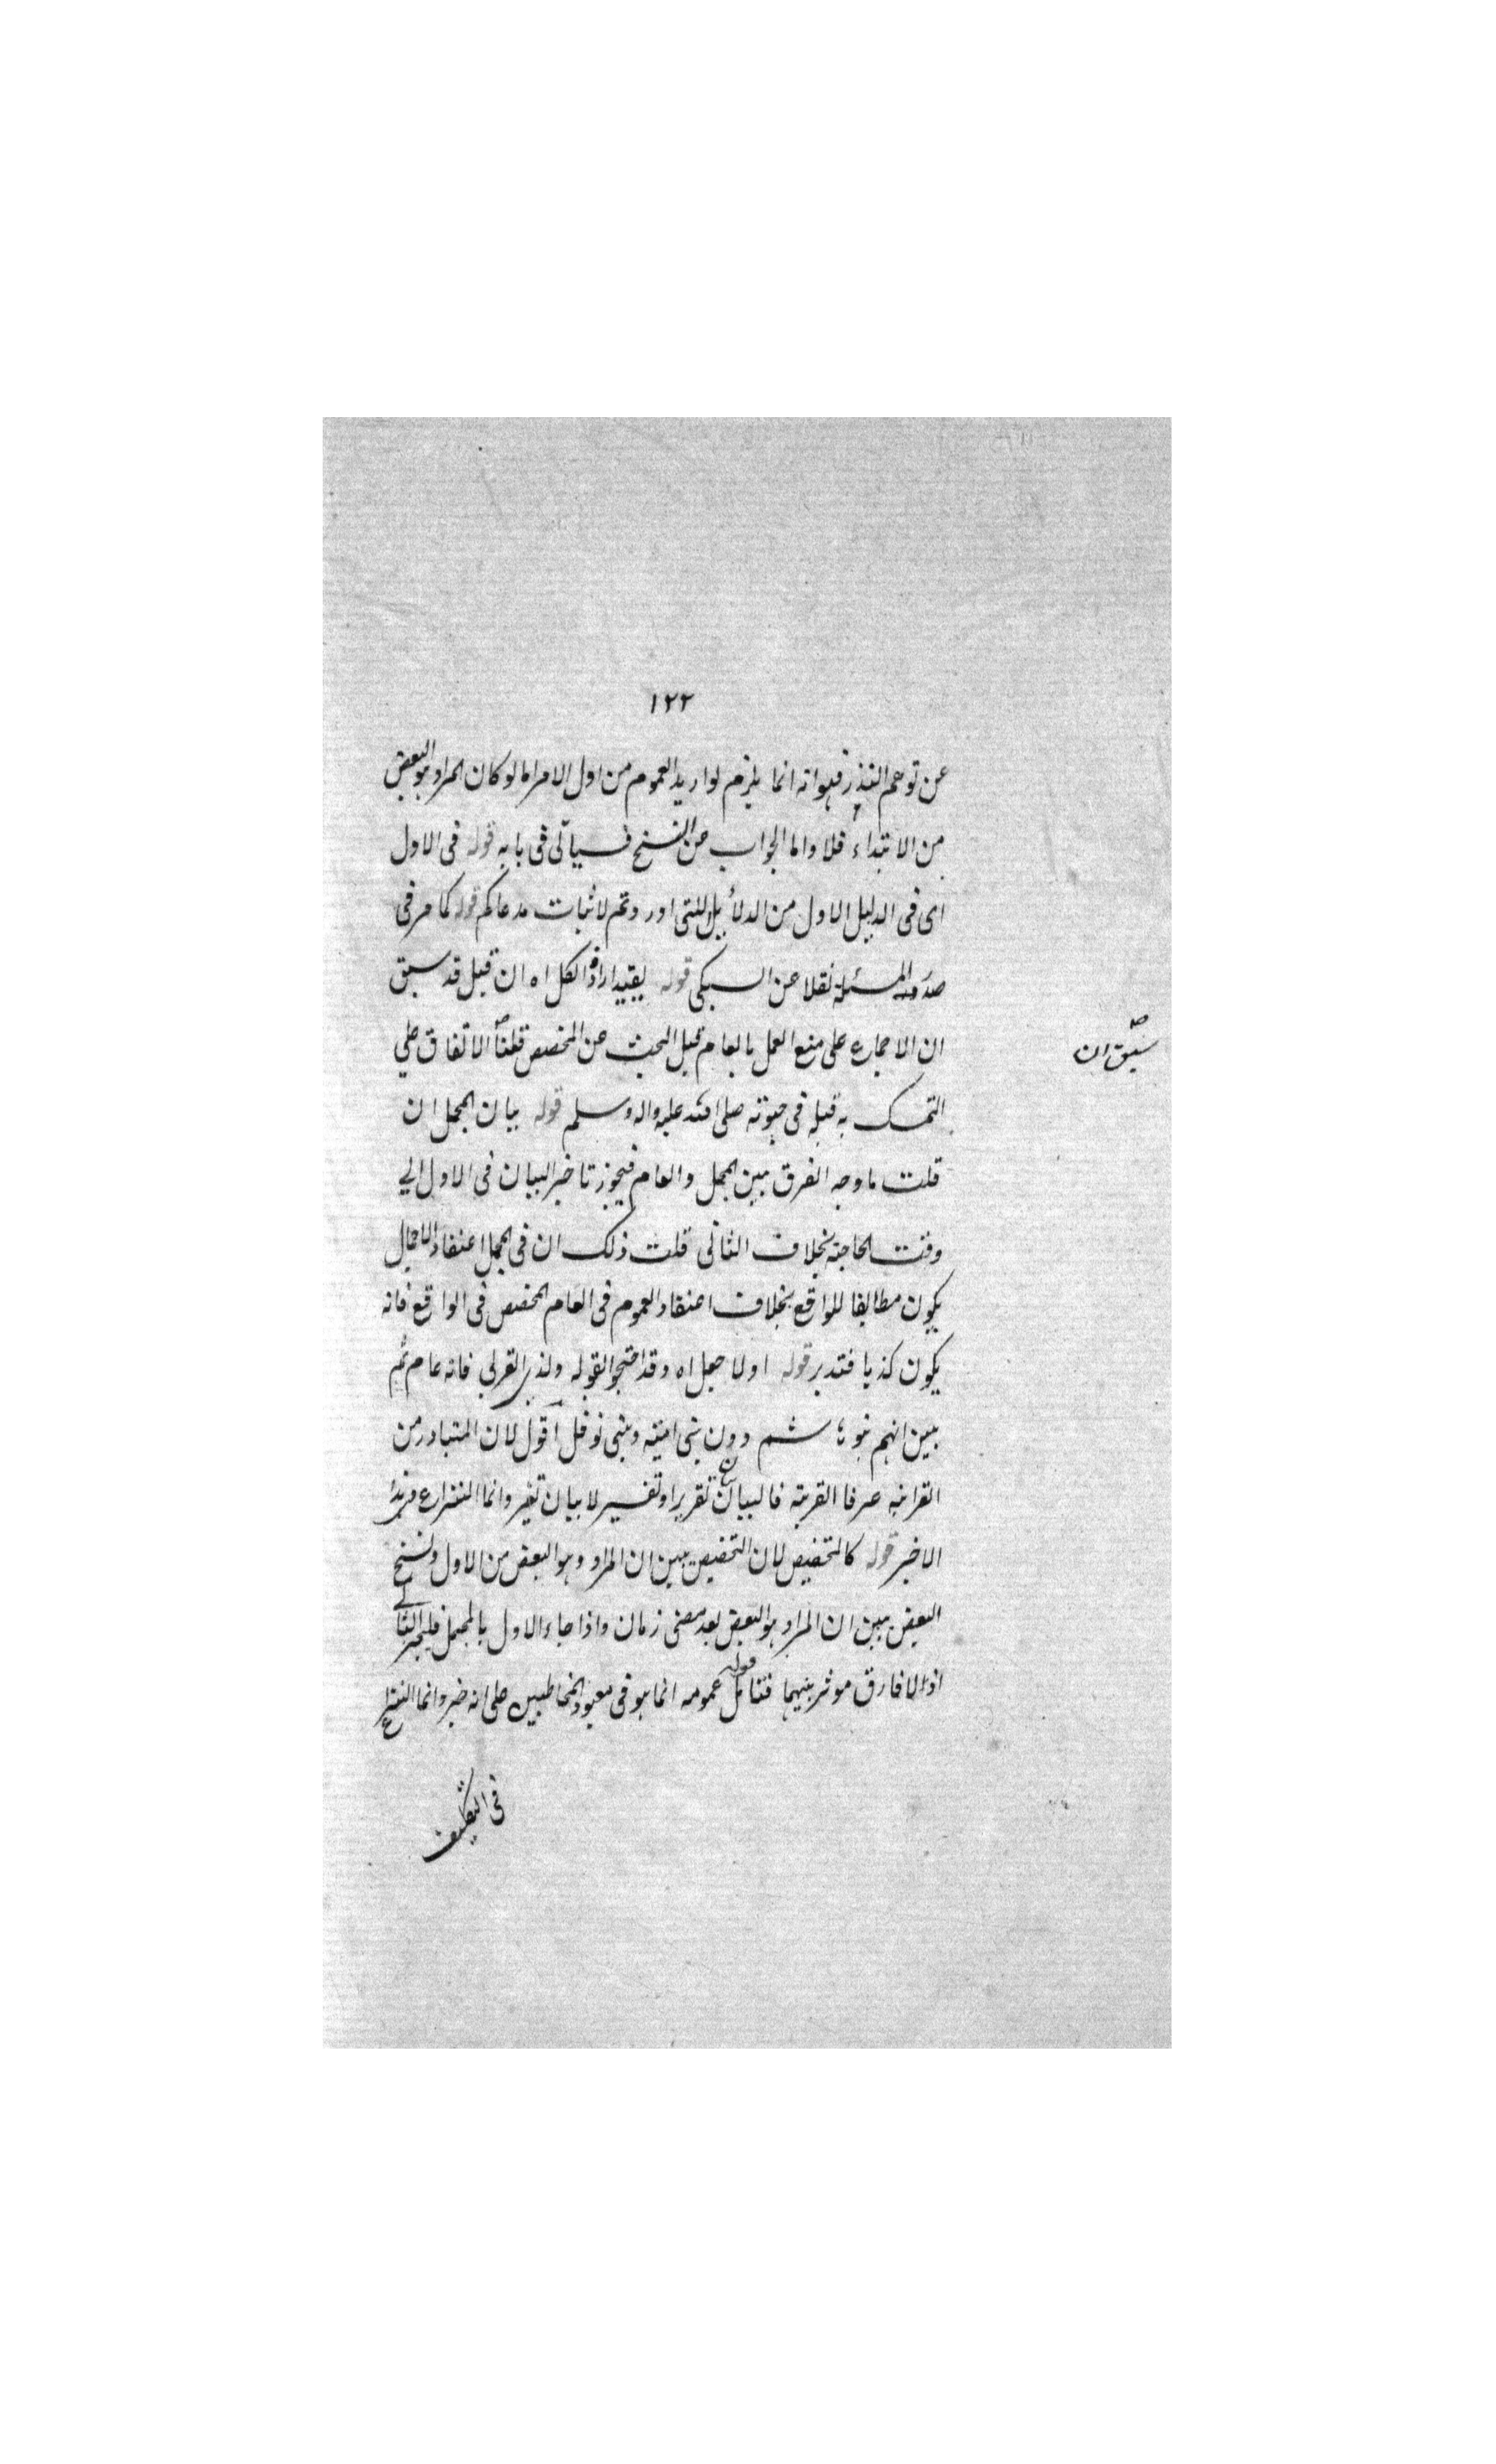 ١٢٢
عن توهم الكذب فهو انه انما يلزم لو اريد العموم من اول الامر اما لو كان المراد هو البعض
من الابتداء فلا واما الجواب عن النسخ فسيأتى فى بابه قوله فى الاول
اى فى الدليل الاول من الدلائل التى اوردتم لاثبات مدعاكم قوله كما مر فى
صدر المسئلة نقلا عن السبكى قوله يفيد ارادة الكل اه ان قيل قد سبق
ان الاجماع على منع العمل بالعام قبل البحث عن المخصص قلنا الاتفاق على
سبق ان
التمسك به قبله فى حيوته صلى الله عليه واله وسلم قوله بيان المجمل ان
قلت ما وجه الفرق بين المجمل والعام فيجوز تاخير البيان فى الاول الى
وقت الحاجة بخلاف الثانى قلت ذلك ان فى المجمل اعتقاد الاجمال
يكون مطابقا للواقع بخلاف اعتقاد العموم فى العام المخصص فى الواقع فانه
يكون كذبا فتدبر قوله اولا جعل اه وقد احتجوا بقوله ولذى القربى فانه عام ثم
بين انهم بنو هاشم دون بنى امية وبنى نوفل اقول لان المتبادر من
القرابة عرفا القريبة فالبيان ح تقرير او تفسير لا بيان تغير وانما النزاع فى هذا
الاخير قوله كالتخصيص لان التخصيص يبين ان المراد هو البعض من الاول ونسخ
البعض يبين ان المراد هو البعض بعد مضى زمان واذا جاء الاول بالمجمل فليجز الثانى
اذ لا فارق موثر بينهما فتأمل قوله عمومه انما هو فى معبود المخاطبين على انه خبر وانما النزاع
فى التكليف